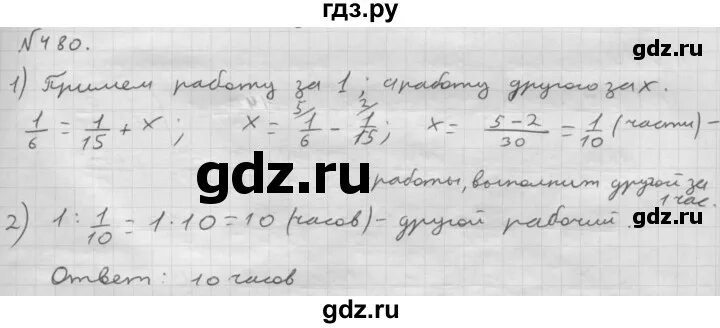 гдз.ру
№480.
gdz.ru
1) Примем работу за 1; а работу другого за x.
1/6 = 1/15 + x; x = 5/ 1/6 - 2/ 1/15; x = 5-2/30 = 1/10 (части) -
gdz.ru
работы, выполнит другой за 1 час.
2) 1 : 1/10 = 1 · 10 = 10 (часов) - другой рабочий.
gdz.ru
gdz.ru
Ответ: 10 часов
gdz.ru